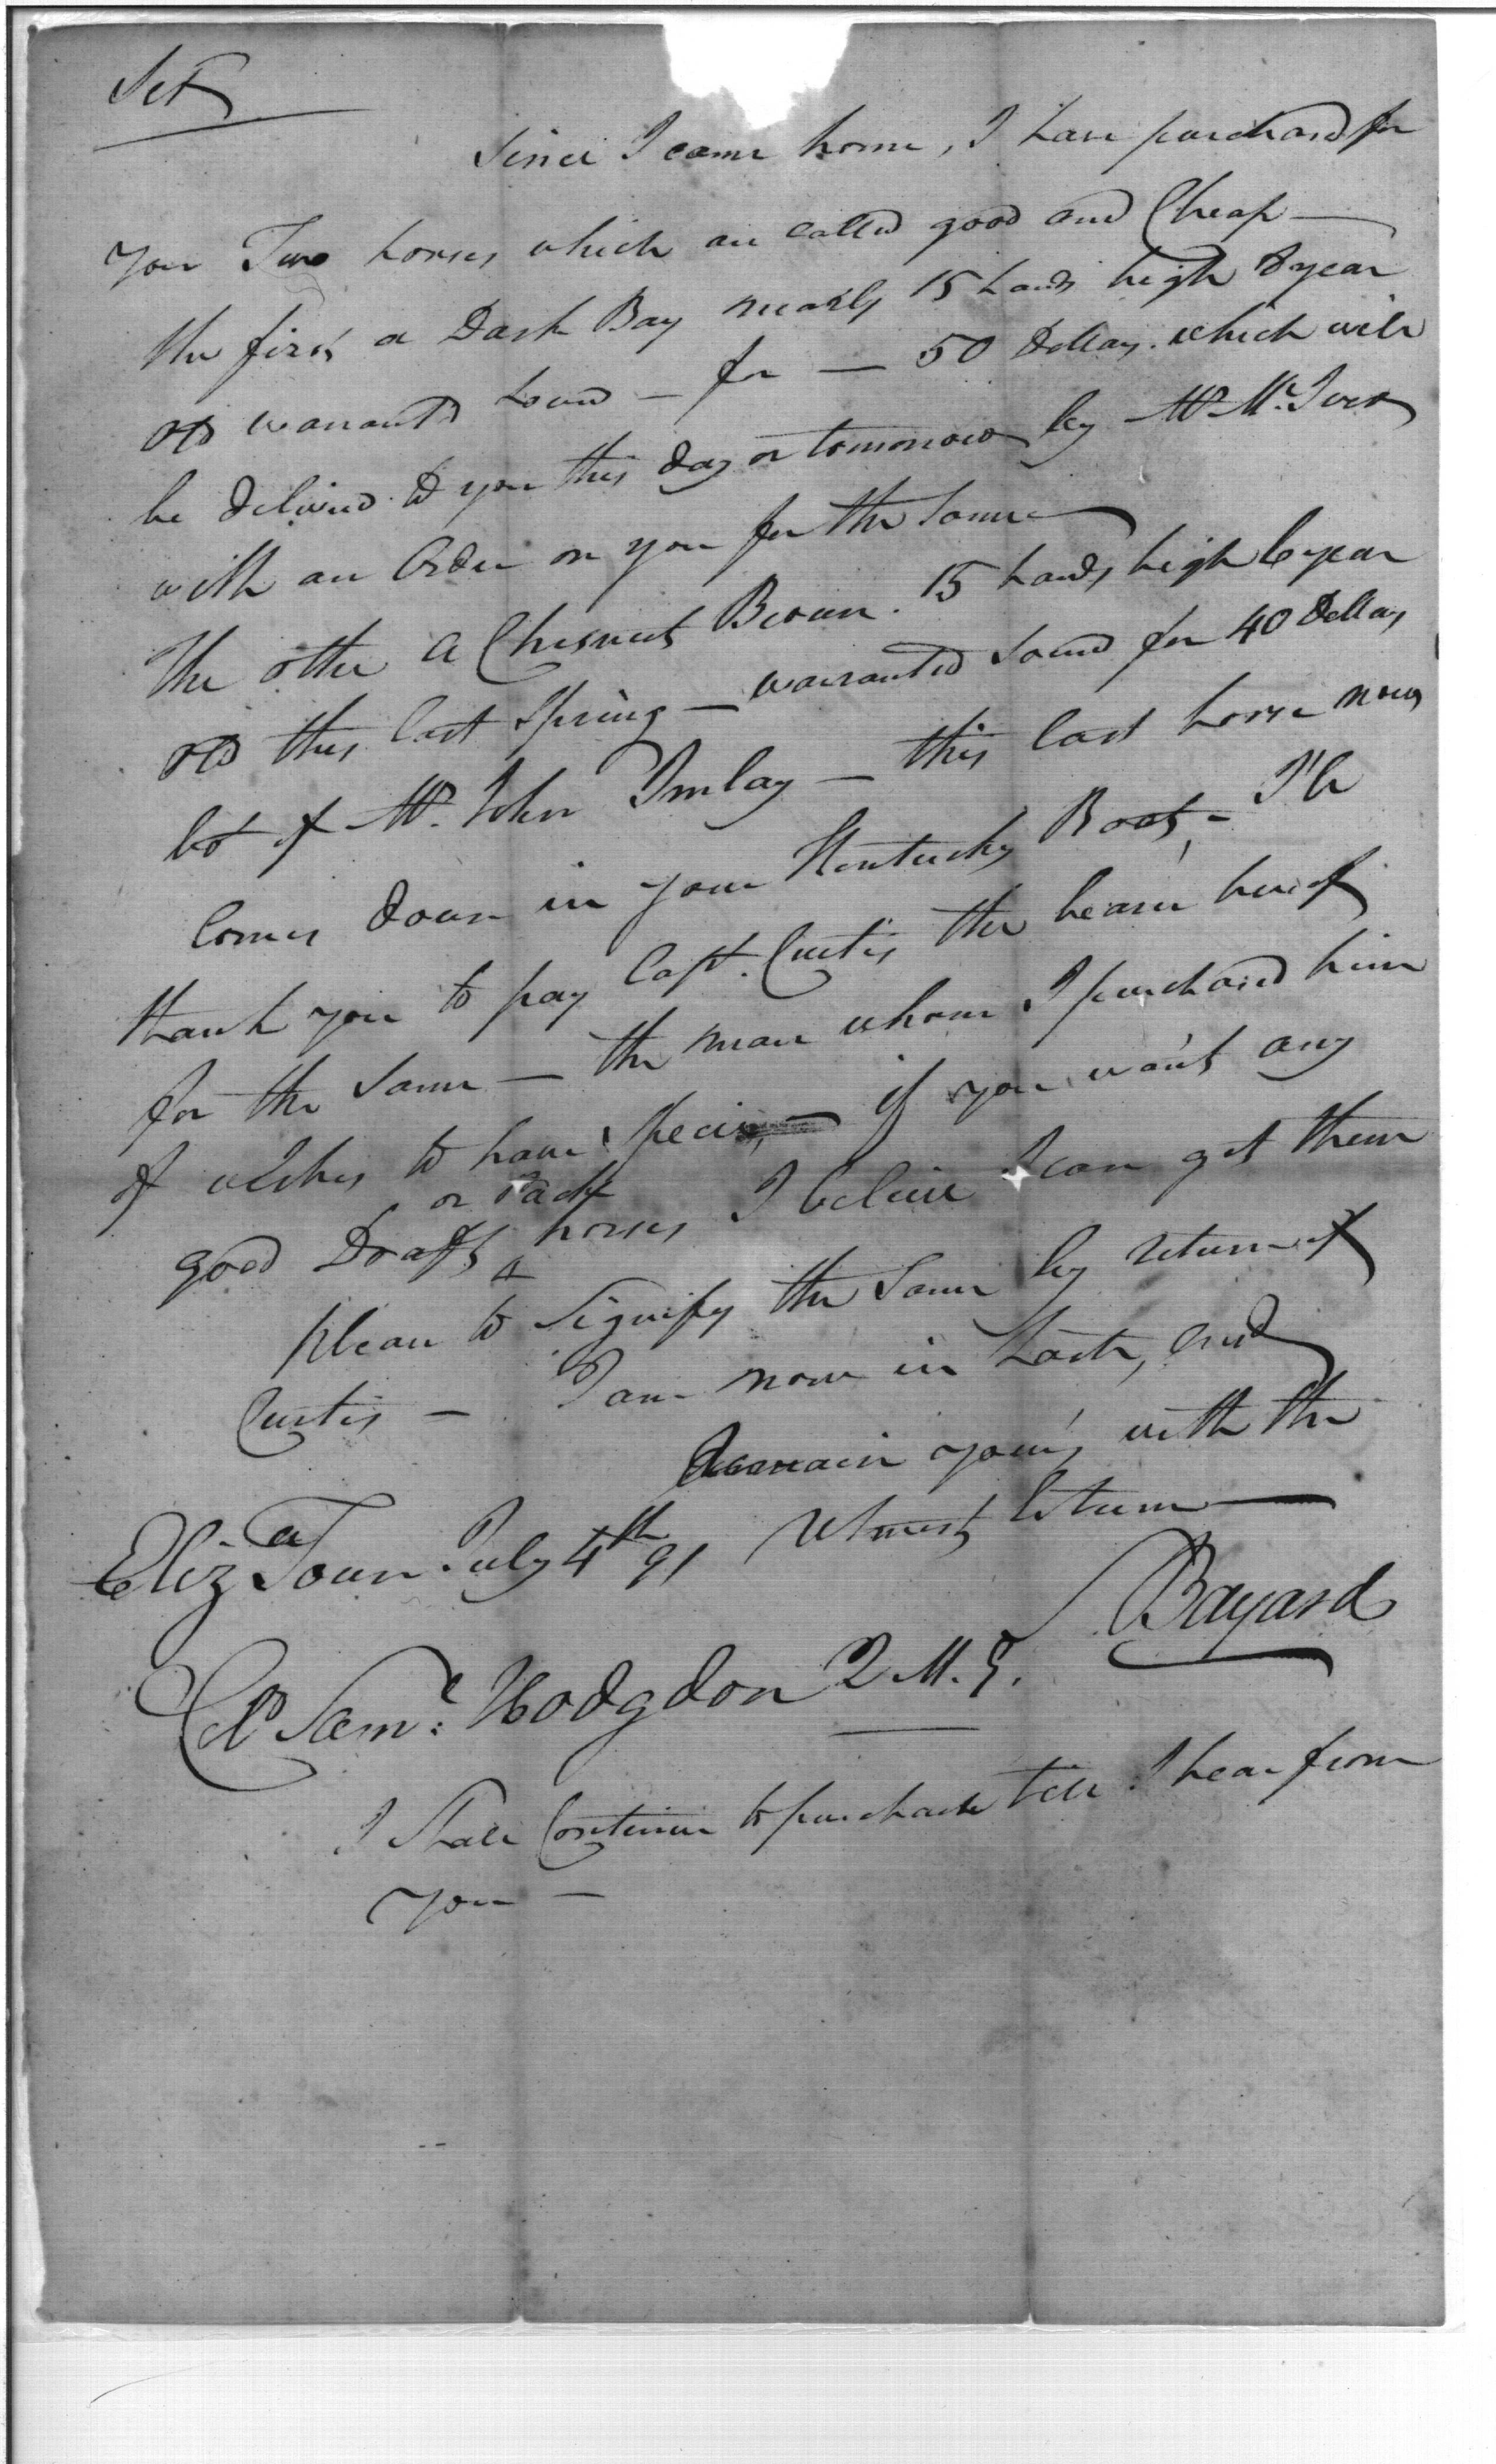 Sir
Since I came home, I have purchased for
you Two horses which are called good and Cheap —
the first a Dark Bay nearly 15 hands high 8 year
old warranted Sound — for — 50 Dollars. which will
be delivered to you this day or tomorrow by Mr. McIver
with an Order on you for the Same —
The other a Chesnut Brown. 15 hands high 6 year
old this last Spring — warranted Sound for 40 Dollars
bot of Mr. John Imlay — this last horse now
Comes down in your Kentucky Boat, — I'll
thank you to pay Capt. Curtis the bearer hereof
for the Same — the man whom I purchased him
of wishes to have Specie, — if you want any
good Draft or Pack horses I believe I can get them
please to Signify the Same by return of
Curtis — I am now in haste, and
Remain yours, with the
Utmost Esteem —
Eliza Town July 4th 91
Bayard
Col Saml. Hodgdon Q. M. G.
I Shall Continue to purchase till I hear from
you —